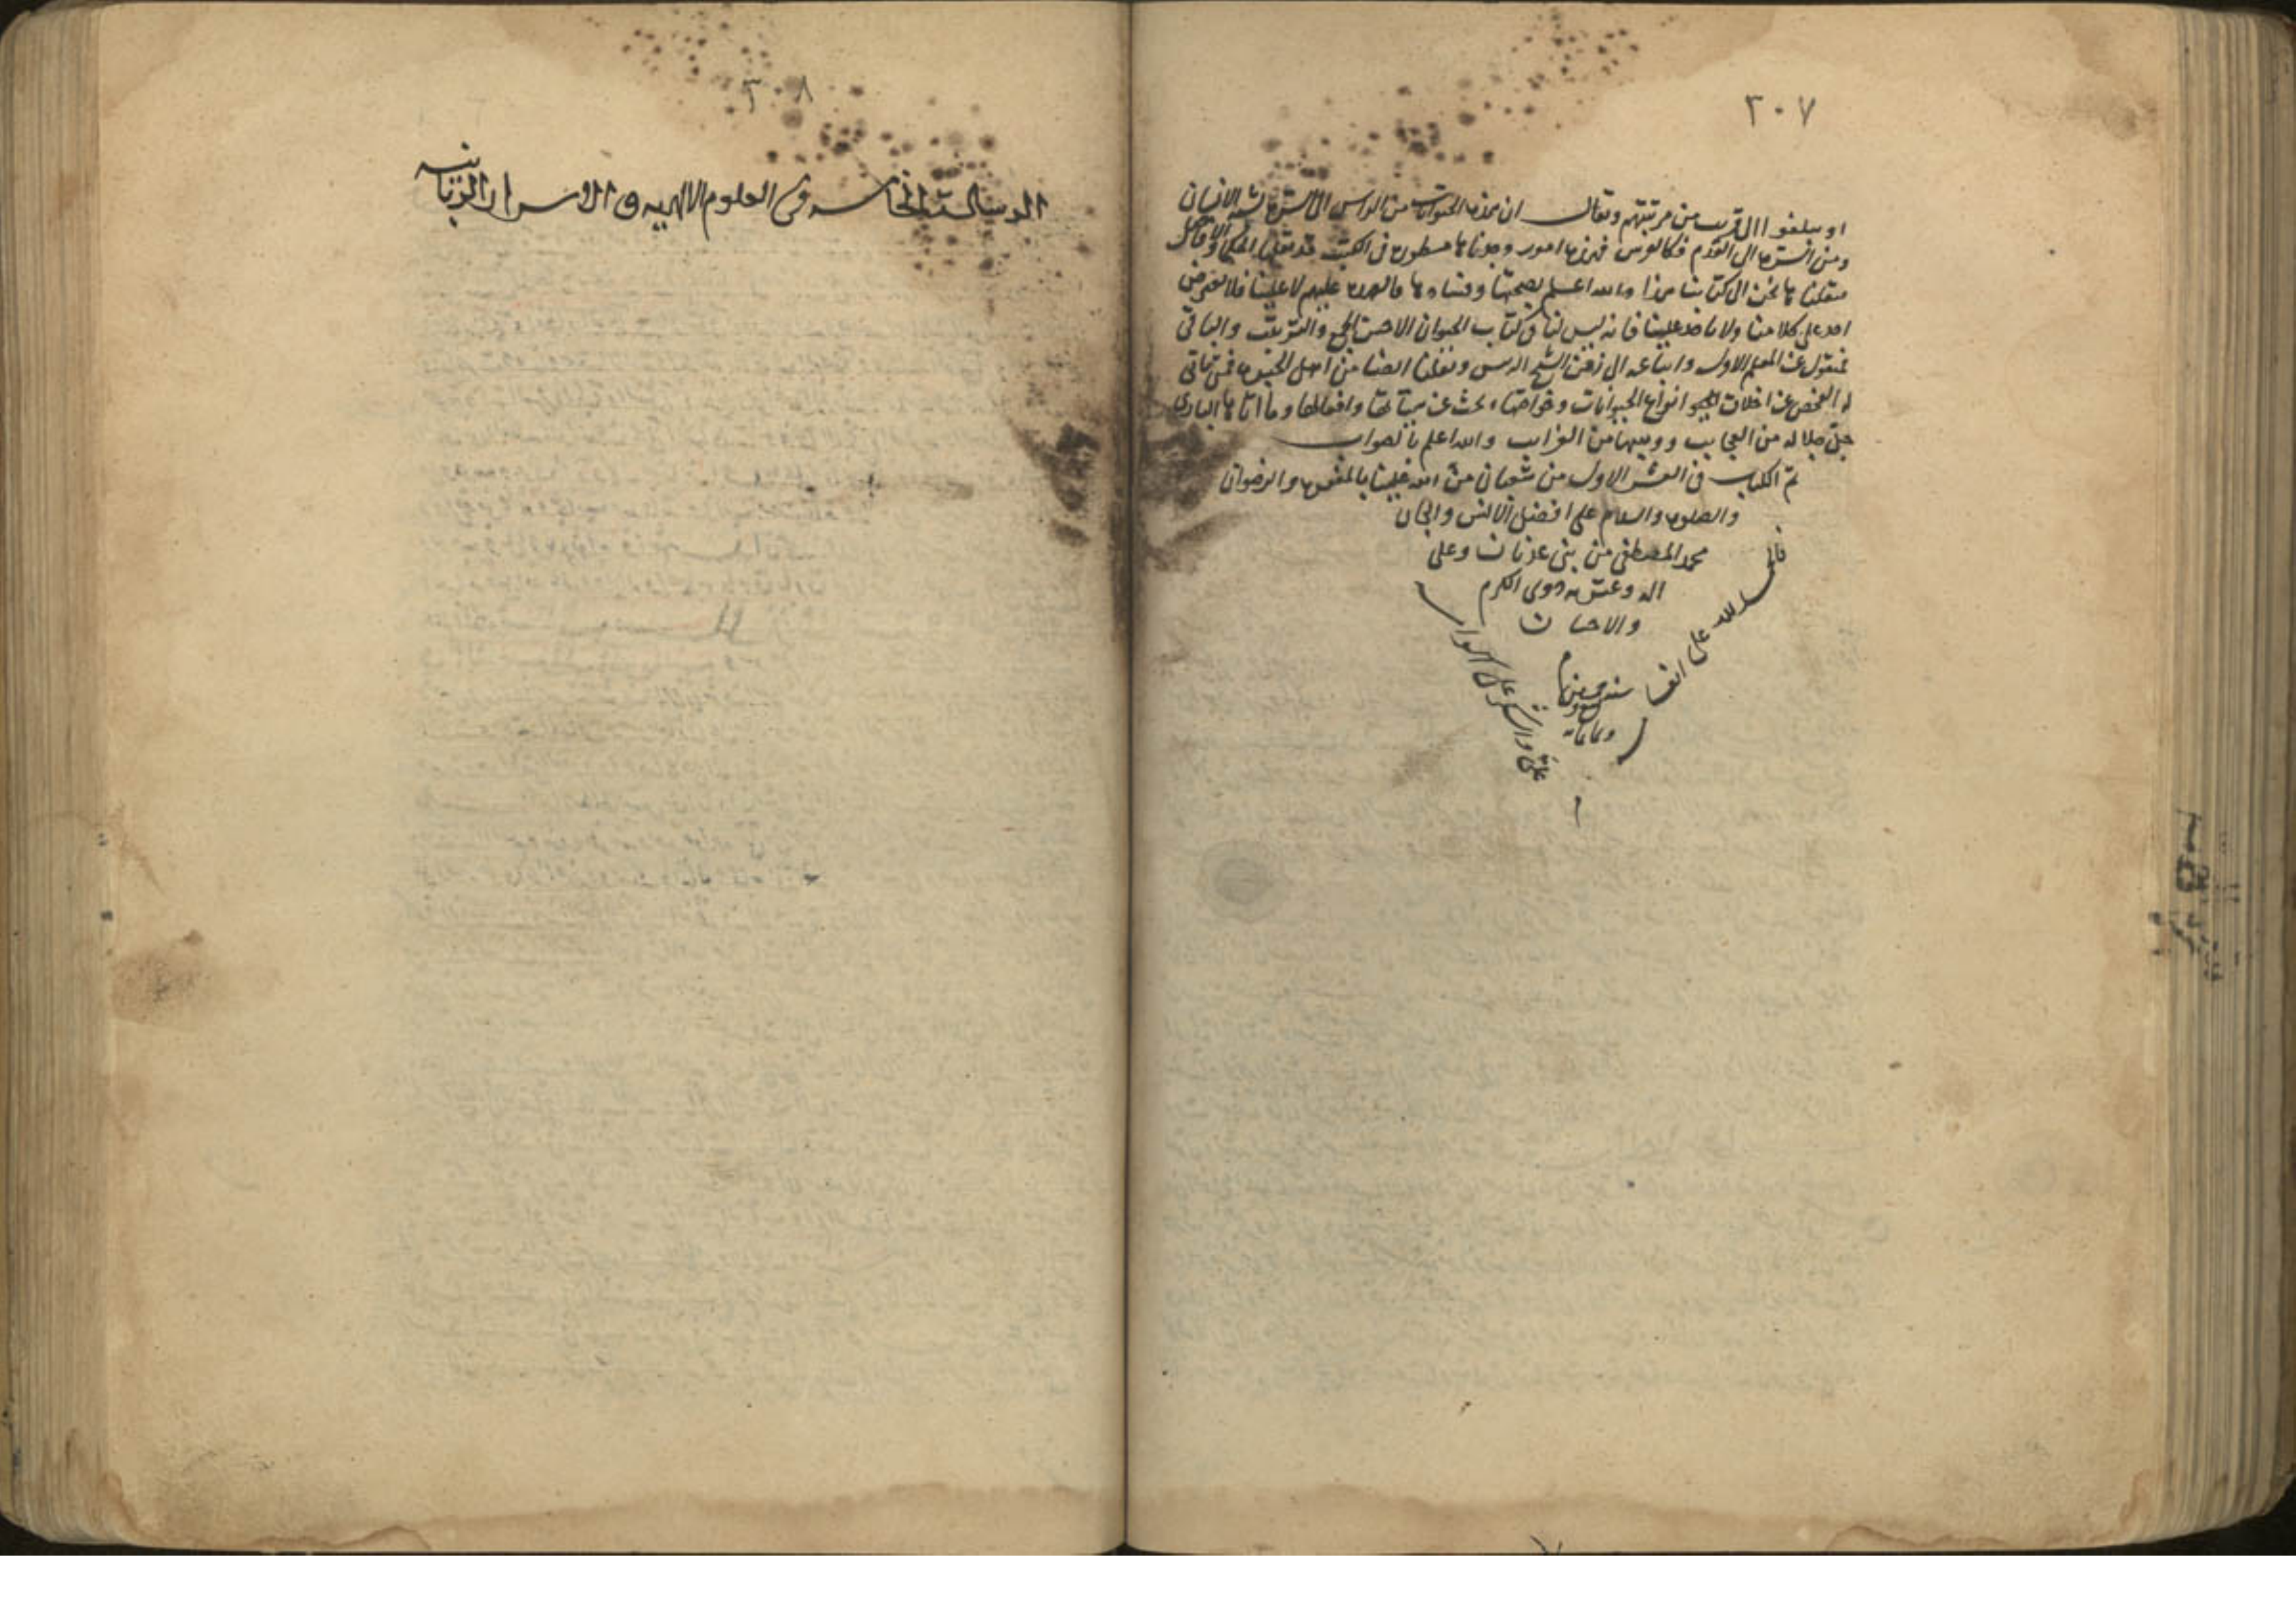 ٢٠٧
او يبلغوا الى قريب من مرتبتهم ويقال ان هذه الحيوانات من الراس الى السرة يشبه الانسان
ومن السرة الى القدم فكالفرس فهذه امور وجدناها مسطورة فى الكتب قد نقلها الحكماء والافاضل
فنقلناها نحن الى كتابنا هذا والله اعلم بصحتها وفسادها فالعهدة عليهم لا علينا فلا يعترض
احد على كلامنا ولا ياخذ علينا فانه ليس لنا فى كتاب الحيوان الا حسن الجمع والترتيب والباقى
منقول عن المعلم الاول واتباعه الى زمن الشيخ الرئيس ونقلنا ايضا من اهل الخبرة فمن تهيأ
له الفحص عن اخلاق انواع الحيوانات وخواصها وبحث عن هيآتها وافعالها وما اتاها البارى
جل جلاله من العجايب ووهبها من الغرايب والله اعلم بالصواب
تم الكتاب فى العشر الاول من شعبان من الله علينا بالمغفرة والرضوان
والصلوة والسلام على افضل الانس والجان
محمد المصطفى من بنى عدنان وعلى
اله وعترته ذوى الكرم
والاحسان
سنة
وثمانمائة
فالحمد لله على
والشكر على
٢٠٨
الرسالة الخامسة فى العلوم الالهية والاسرار الربانية